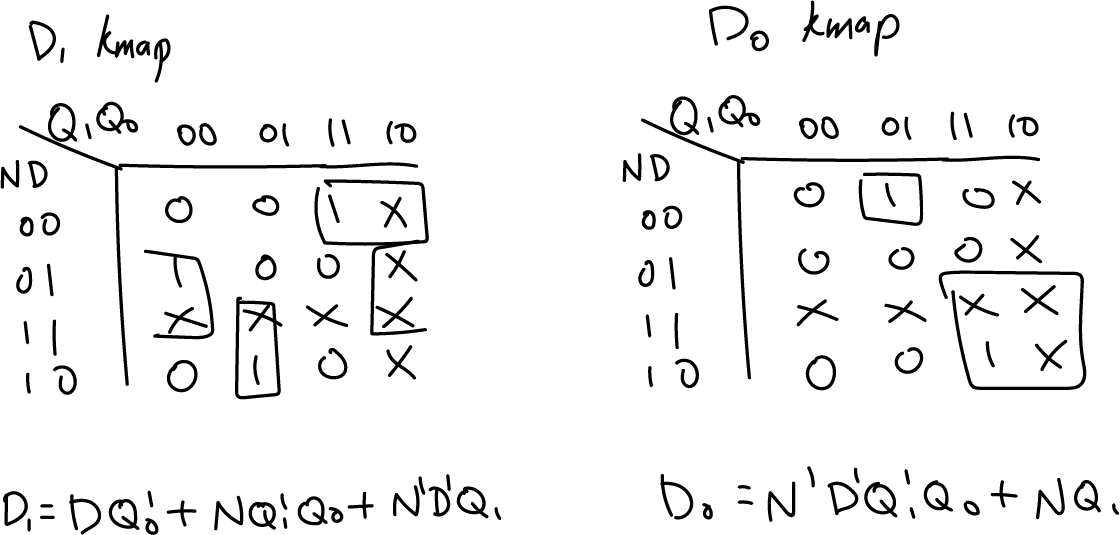 D₁ kmap
Q₁Q₀ 00 01 11 10
ND
00 0 0 1 X
01 1 0 0 X
11 X X X X
10 0 1 0 X
D₁ = DQ₀' + NQ₁'Q₀ + N'D'Q₁
D₀ kmap
Q₁Q₀ 00 01 11 10
ND
00 0 1 0 X
01 0 0 0 X
11 X X X X
10 0 0 1 X
D₀ = N'D'Q₁'Q₀ + NQ₁